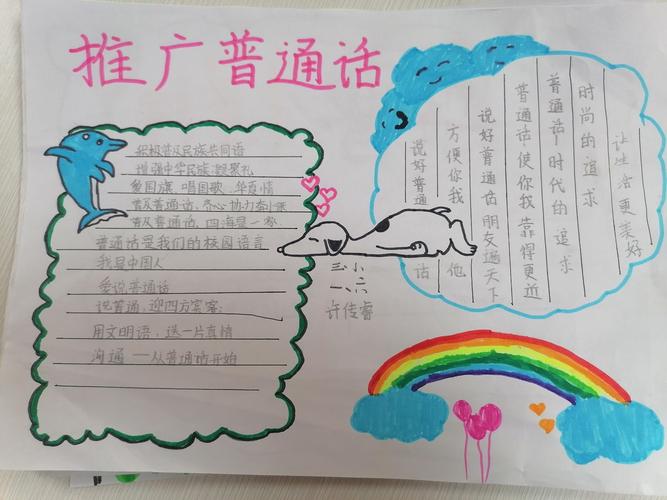 推广普通话
积极普及民族共同语
增强中华民族凝聚礼
爱国旗、唱国歌、牟真情
普及普通话、齐心协力奋
普及普通话、四海是一家
普通话是我们的校园语言
我是中国人
爱说普通话
说普通、迎四方宾客;
用文明语，送一片真情
沟通——从普通话开始
三小
一、六
许传睿
让生活更美好
时尚的追求
普通话,时代的追求
普通话,使你我靠得更近
说好普通话朋友遍天下
方便你我他
说好普通话